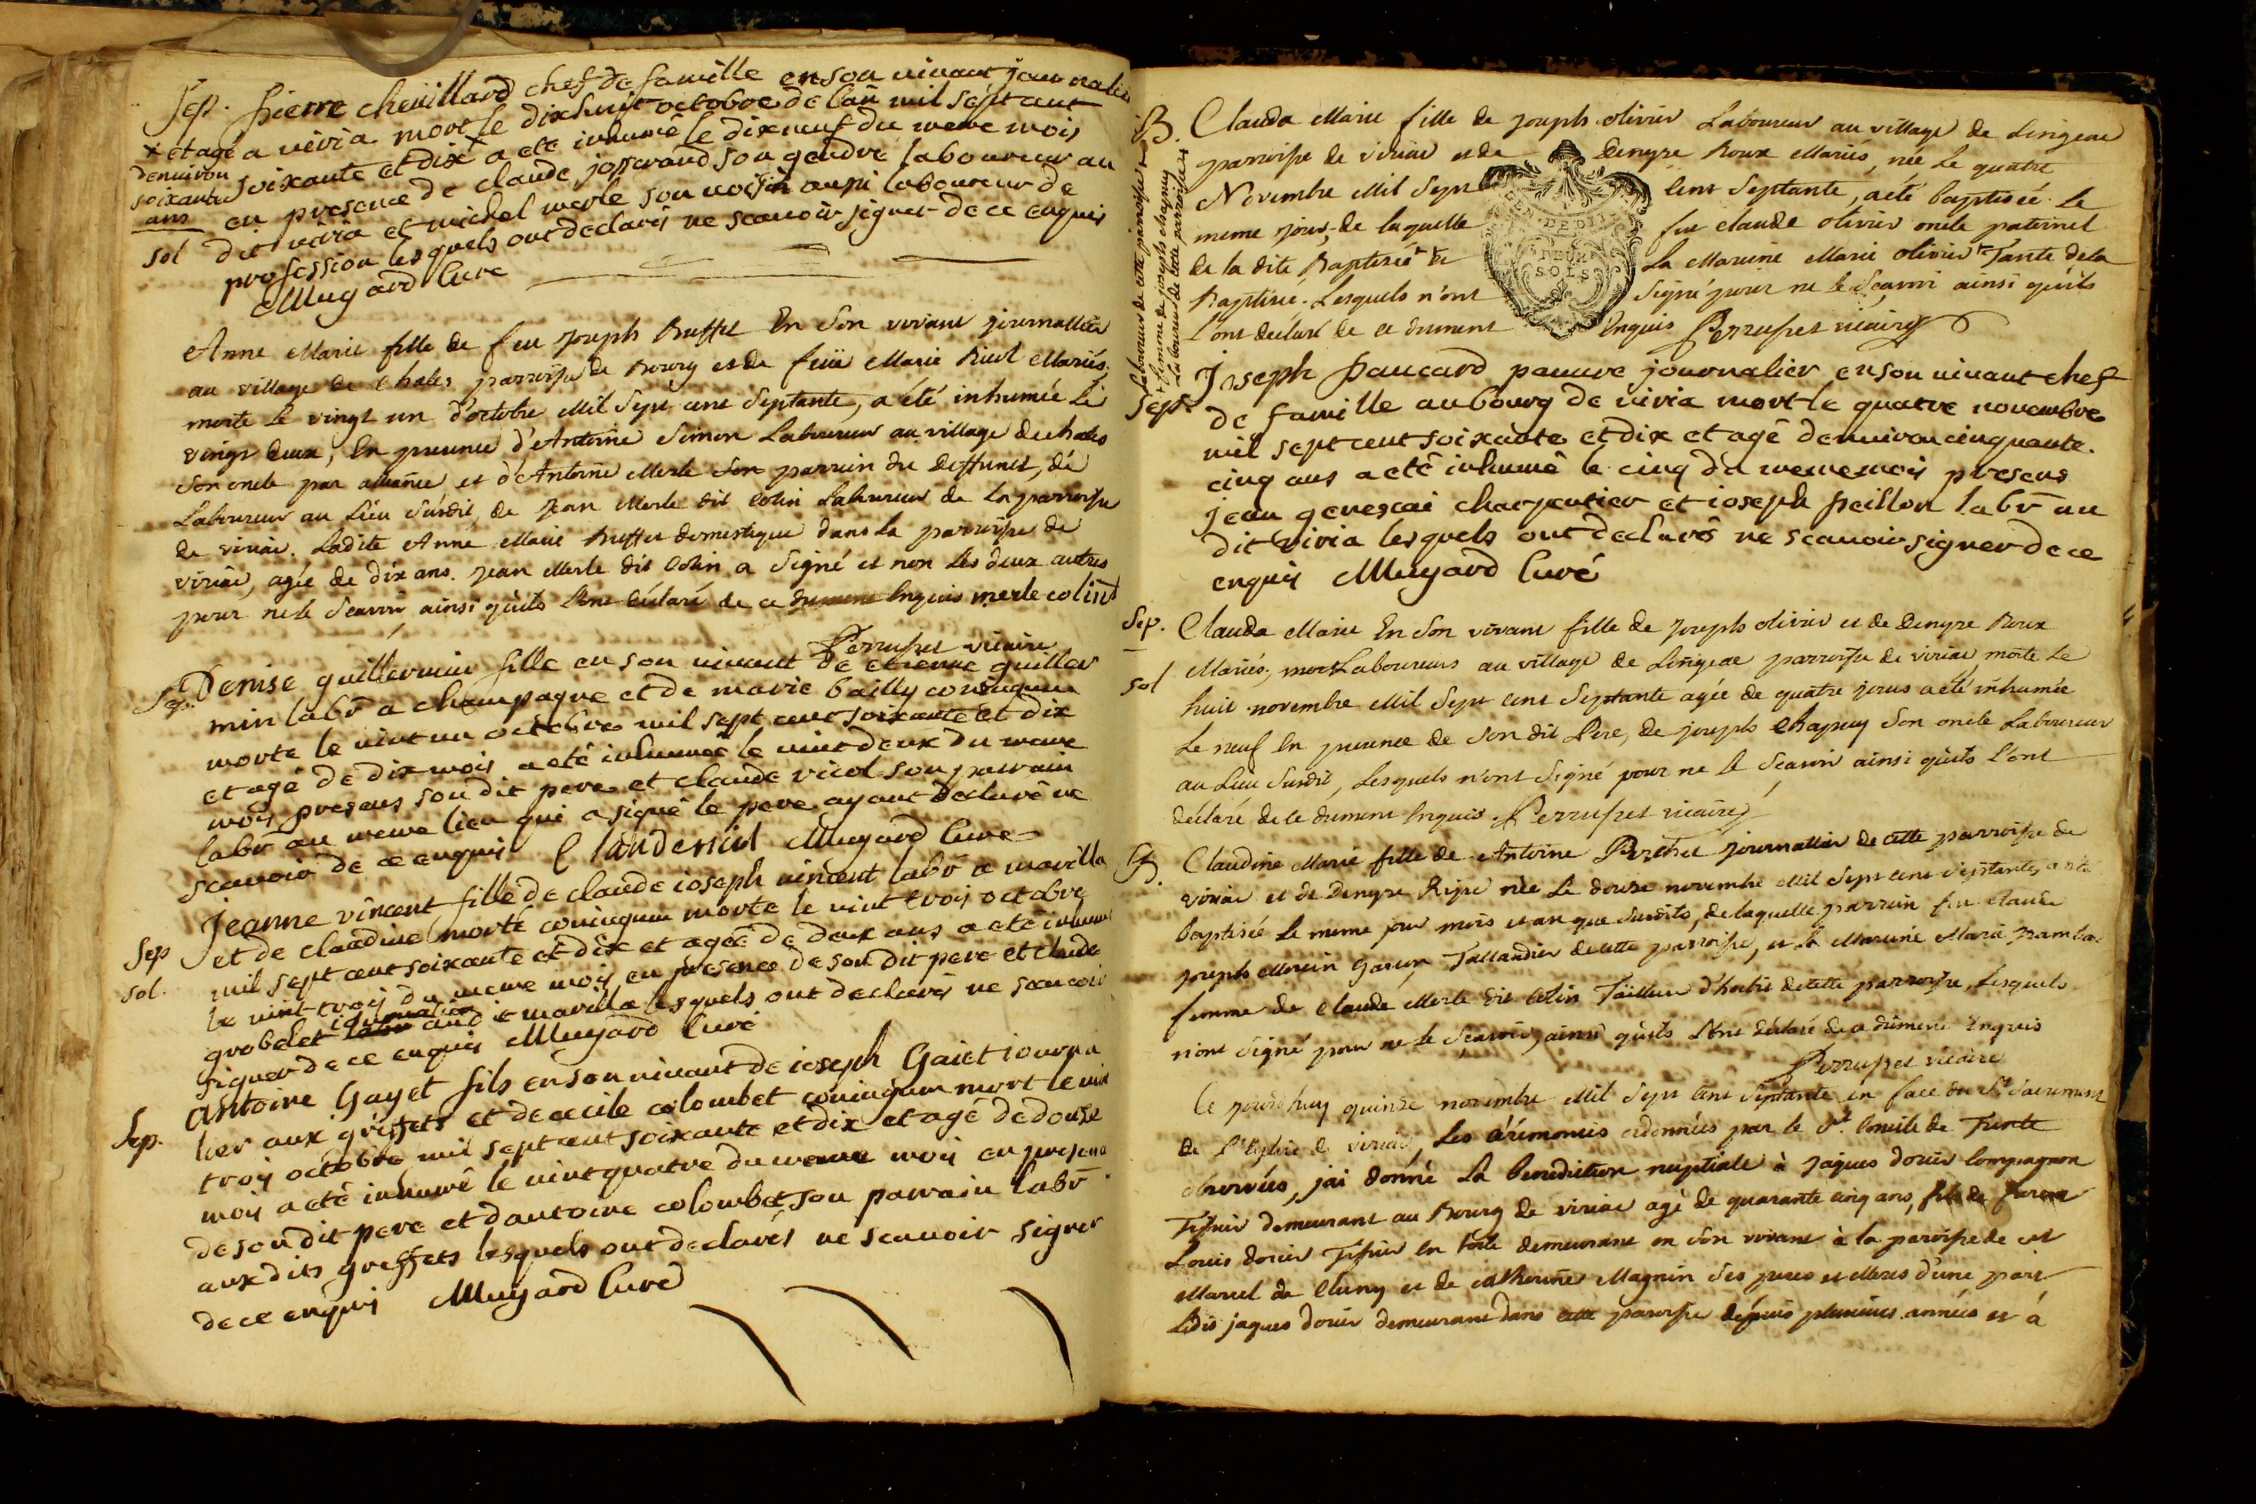 Sep. Pierre cheuillard chef de famille en son uiuant journalier
a viria mort le dixhuit octobre de lan mil sept cent
× et agé denuiron soixante ans
soixante et dix a eté inhumé le dixneuf du meme mois
en presence de claude josserand son gendre laboureur au
sol dit viria et michel merle son uoisin aussi laboureur de
profession lesquels ont declarés ne scauoir signer de ce enquis
Muyard Curé
Anne Marie fille de feu Joseph Buffet En Son vivant journallier
au village de Chales parroisse de Bourg et de feüe Marie Mariés,
morte Le vingt un d'octobre Mil Sept cent Septante, a été inhumée Le
vingt deux, En presence d'Antoine Simon Laboureur au village de chales
Son oncle par alliance et d'Antoine Merle Son parrain du deffunct, dé
Laboureur au Lieu Susdit, de Jean Merle dit Colin Laboureur de la parroisse
de viriac. Ladite Anne Marie Buffet domestique dans La parroisse de
viriac, agée de dix ans. Jean Merle dit Colin a Signé et non Les deux autres
pour ne le Scavoir ainsi quils L'ont déclaré de ce dument Enquis merle colin
Perruset vicaire
Sep. Denise guillermin fille en son uiuant de etienne guiller
min labr a champagne et de marie bailly coniugum
morte le vint un octobre mil sept cent soixante et dix
et agé de dix mois a eté inhumée le uint deux du meme
mois presens son dit pere et claude ricol son parrain
labr au meme lieu qui a signé le pere ayant declaré ne
scauoir de ce enquis Claude ricol Muyard Curé
Sep Jeanne vincent fille de claude ioseph uincent labr a marilla
sol. et de claudine morte coniugum morte le uint trois octobre
mil sept cent soixante et dix et agée de deux ans a eté inhumé
le uint trois du meme mois en presence de son dit pere et claude
grobelet journalier au dit marilla lesquels ont declarés ne scauoir
signer de ce enquis Muyard Curé
Sep. Antoine Gayet fils en son uiuant de ioseph Gaiet iourna
lier aux greffets et de cecile colombet coniugum mort le uint
trois octobre mil sept cent soixante et dix et agé de douze
mois a eté inhumé le uint quatre du meme mois en presence
de son dit pere et dantoine colombet son parrain labr
aux dits greffets lesquels ont declarés ne scauoir signer
de ce enquis Muyard Curé
B. Clauda Marie fille de Joseph olivier Laboureur au village de Lingeat
parroisse de viriac et de Denyse Roux Mariés, née Le quatre
Novembre Mil Sept Cent Septante, a été baptisée Le
meme jour, de laquelle fut claude olivier oncle paternel
de la dite Baptisée La Mareine Marie olivier Tante de la
Baptisée. Lesquels n'ont Signé pour ne le Scavoir ainsi quils
L'ont declaré de ce dument Enquis Perruset vicaire
GEN. DE DIJ
DEUX
SOLS
Laboureur de cette parroisse
femme de joseph chapuy
Laboureur de cette parroisse
Sep. Joseph Paucard pauure journalier en son uiuant chef
de famille au bourg de viria mort le quatre nouembre
mil sept cent soixante et dix et agé denuiron cinquante
cinq ans a eté inhumé le cinq du meme mois presens
jean charpentier et ioseph peillon labr au
dit viria lesquels ont declarés ne scauoir signer de ce
enquis Muyard Curé
Sep. Clauda Marie En Son vivant fille de Joseph olivier et de Denyse Roux
Mariés, Laboureurs au village de Lingeat parroisse de viriac, morte Le
sol huit novembre Mil Sept Cent Septante agée de quatre jours a été inhumée
Le neuf En presence de Son dit Pere, de joseph Chapuy Son oncle Laboureur
au Lieu Susdit, Lesquels n'ont Signé pour ne le Scavoir ainsi quils L'ont
déclaré de ce dument Enquis Perruset vicaire
B. Claudine Marie fille de Antoine journallier de cette parroisse de
viriac et de Denyse née Le douze novembre Mil Sept Cent Septante, a été
baptisée Le meme jour mois et an que Susdits, de laquelle parrein fut claude
joseph garçon Taillandier de cette parroisse, et La Mareine Marie
femme de Claude Merle dit Colin Tailleur d'habits de cette parroisse, Lesquels
n'ont Signé pour ne le Scavoir, ainsi quils L'ont déclaré de ce dument Enquis
Perruset vicaire
Ce jourdhuy quinze novembre Mil Sept Cent Septante, en face du St Sacrement
de L'Eglise de viriac, Les cérémonies ordonnées par le St Concile de Trente
observées, jai donné La benediction nuptiale à Jaques dorier Compagnon
Tissier demeurant au Bourg de viriac agé de quarante cinq ans, fils de
Louis dorier Tissier En toile demeurant en Son vivant à la parroisse de st
Marcel de Cluny et de catherine Magnin Ses peres et Meres d'une part
Ledit jaques dorier demeurant dans cette parroisse dépuis plusieurs années et à